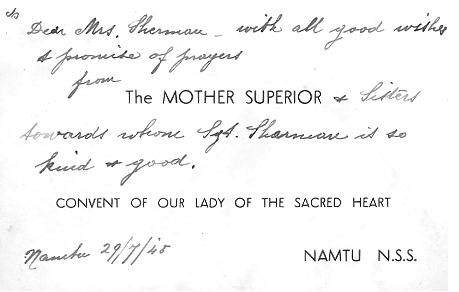 Dear Mrs. Sherman - with all good wishes
& promise of prayers
from
The MOTHER SUPERIOR & Sisters
towards whom Sgt. Sherman is so
kind & good.
CONVENT OF OUR LADY OF THE SACRED HEART
Namtu 29/7/45 NAMTU N.S.S.